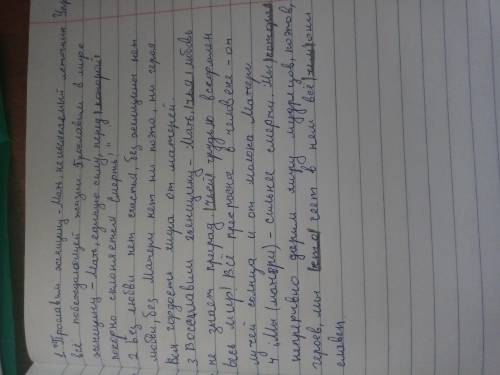 1. "Прославим женщину - Мать, неиссякаемый источник
всё побеждающей жизни. Прославим в мире
женщину - Мать, единую силу, перед которой
покорно склоняется Смерть!"
2. Без любви нет счастья, без женщины нет
любви, без Матери нет ни поэта, ни героя.
Вся гордость мира от матерей.
3. Восславим женщину - Мать, чья любовь
не знает преград, чьей грудью вскормлен
весь мир! Всё прекрасное в человеке - от
лучей солнца и от молока Матери
4. "Мы (матери) - сильнее смерти. Мы, которые
непрерывно дарим миру мудрецов, поэтов,
героев, мы кто сеет в нём всё, чем он
славен